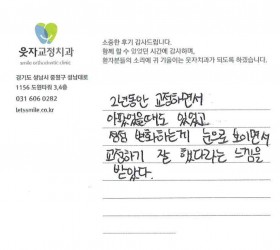 웃자교정치과
smile orthodontic clinic
경기도 성남시 중원구 성남대로
1156 도원타워 3,4층
031 606 0282
letssmile.co.kr
소중한 후기 감사드립니다.
함께 할 수 있었던 시간에 감사하며,
환자분들의 소리에 귀 기울이는 웃자치과가 되도록 하겠습니다.
2년동안 교정하면서
아팠었을때도 있었고
점점 변화하는게 눈으로 보이면서
교정하기 잘 했다라는 느낌을
받았다.